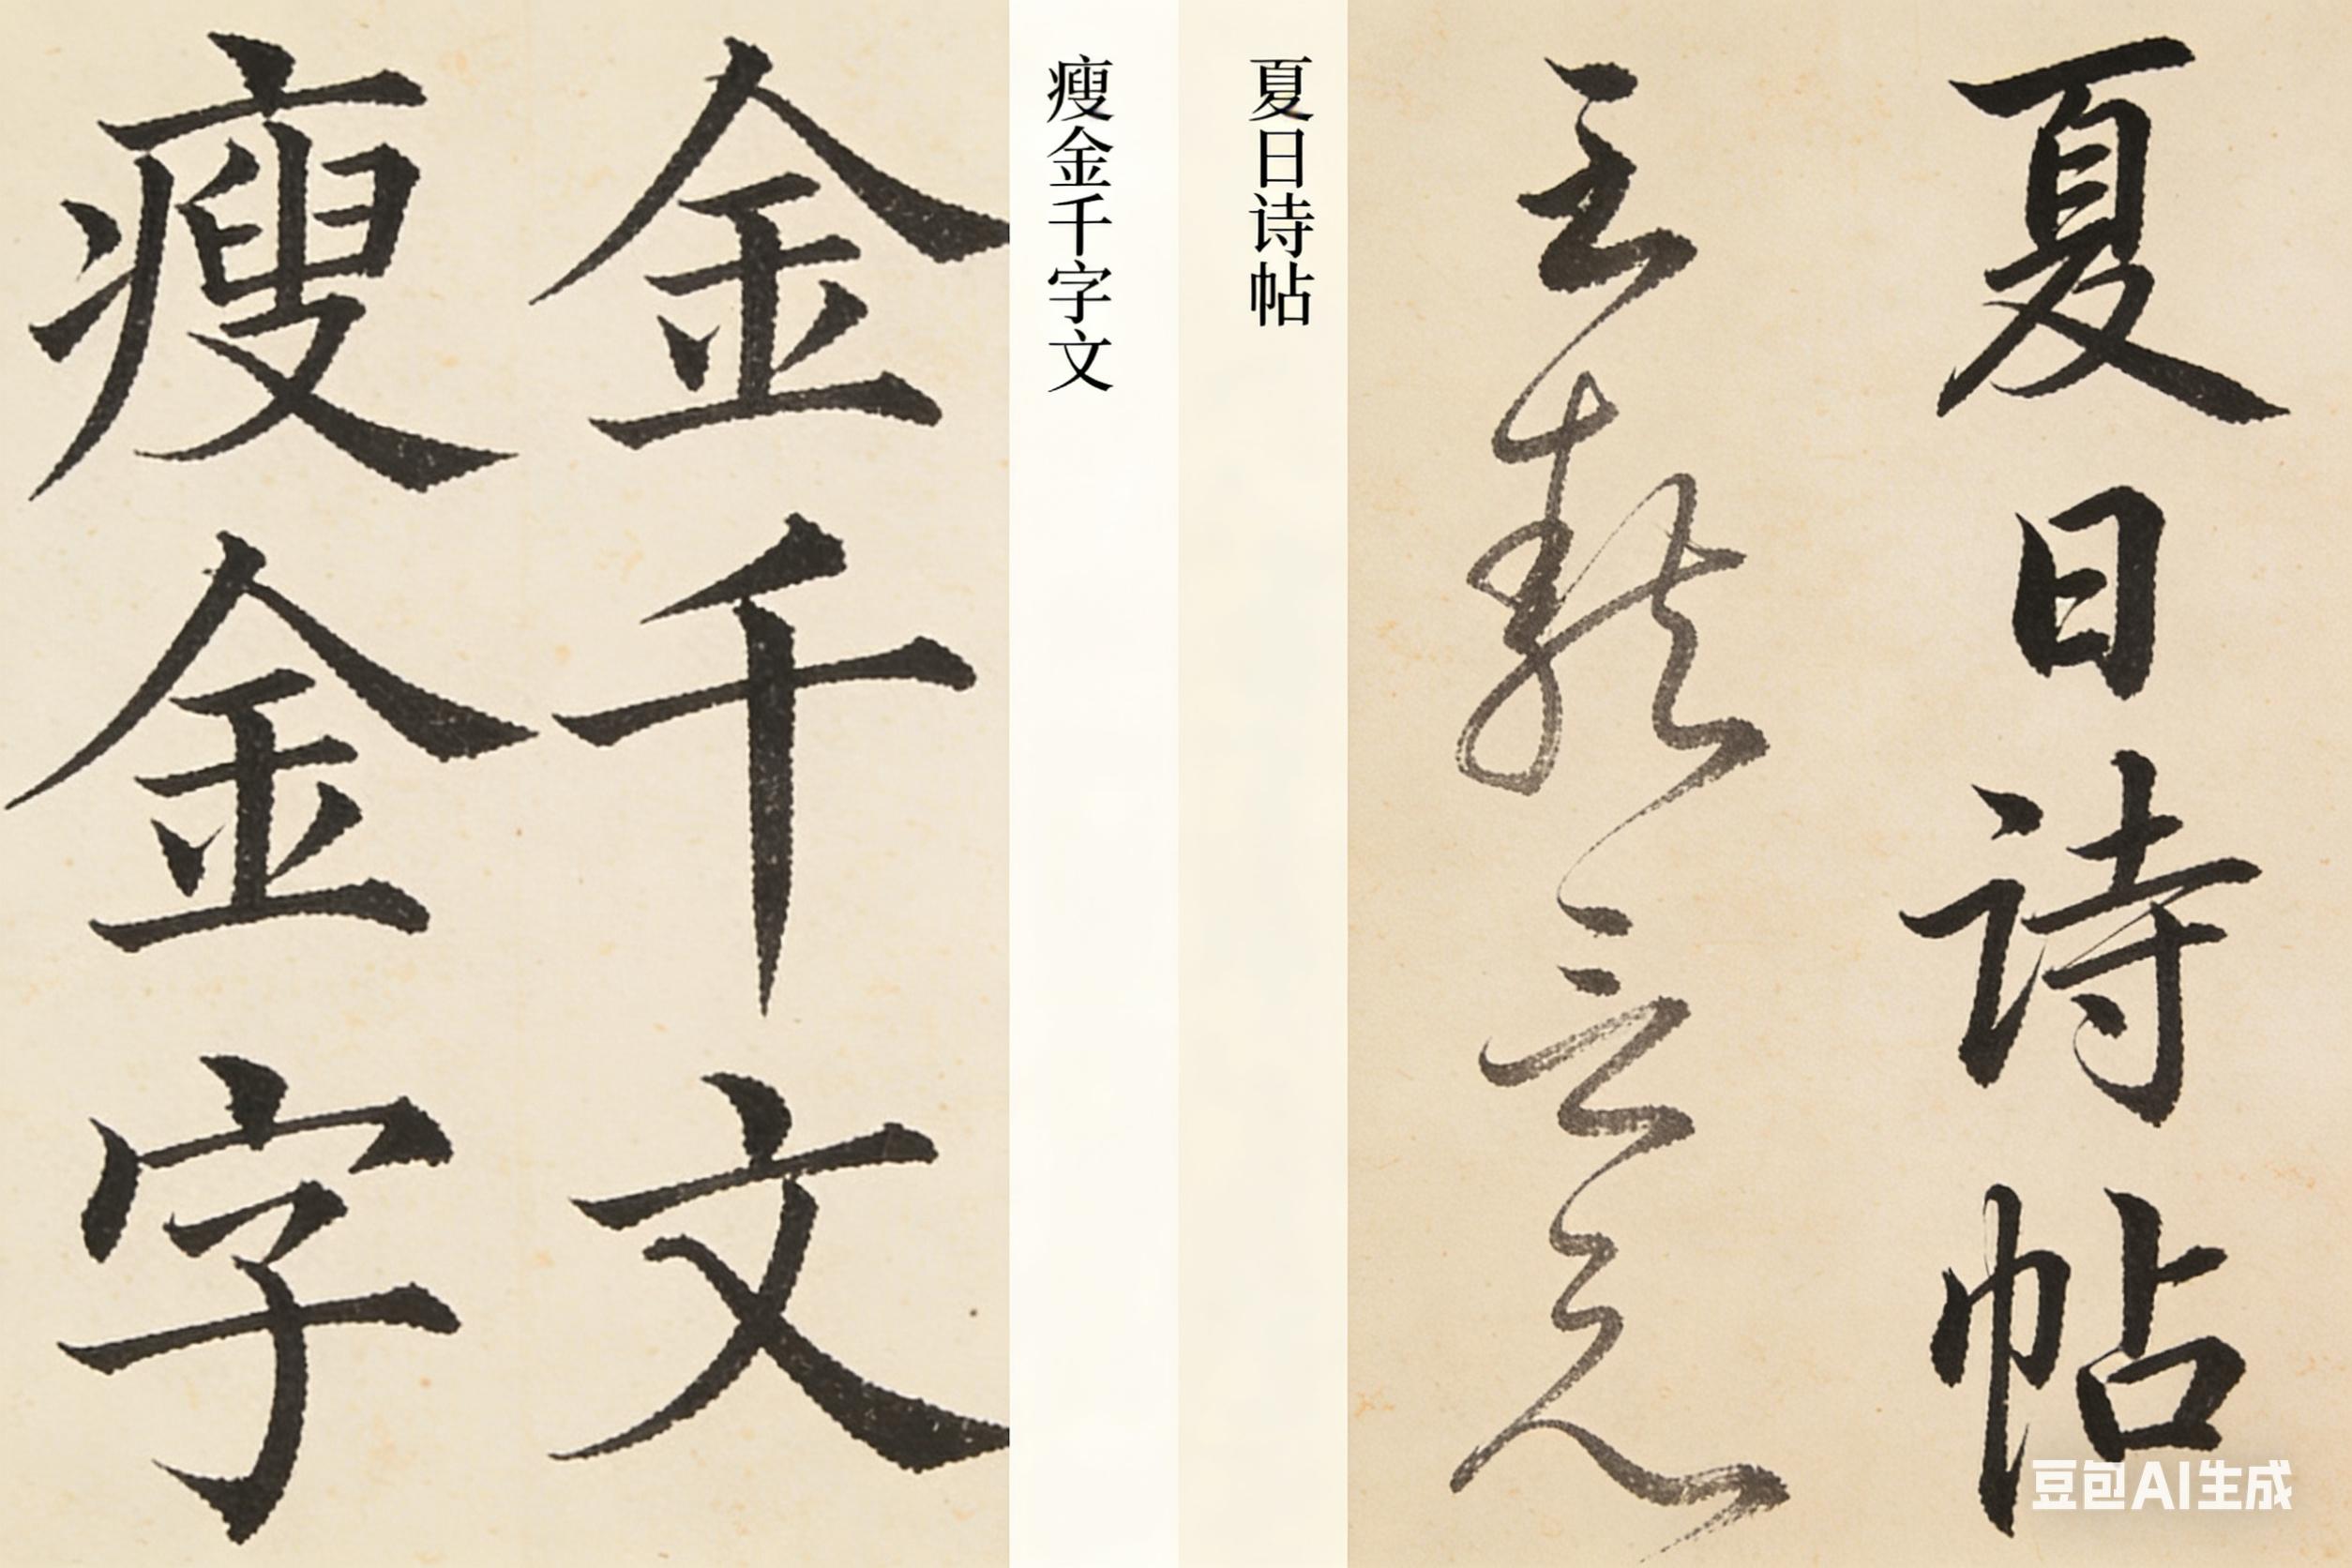 夏日诗帖
夏日诗帖
瘦金千字文
金千文
瘦金字
豆包AI生成